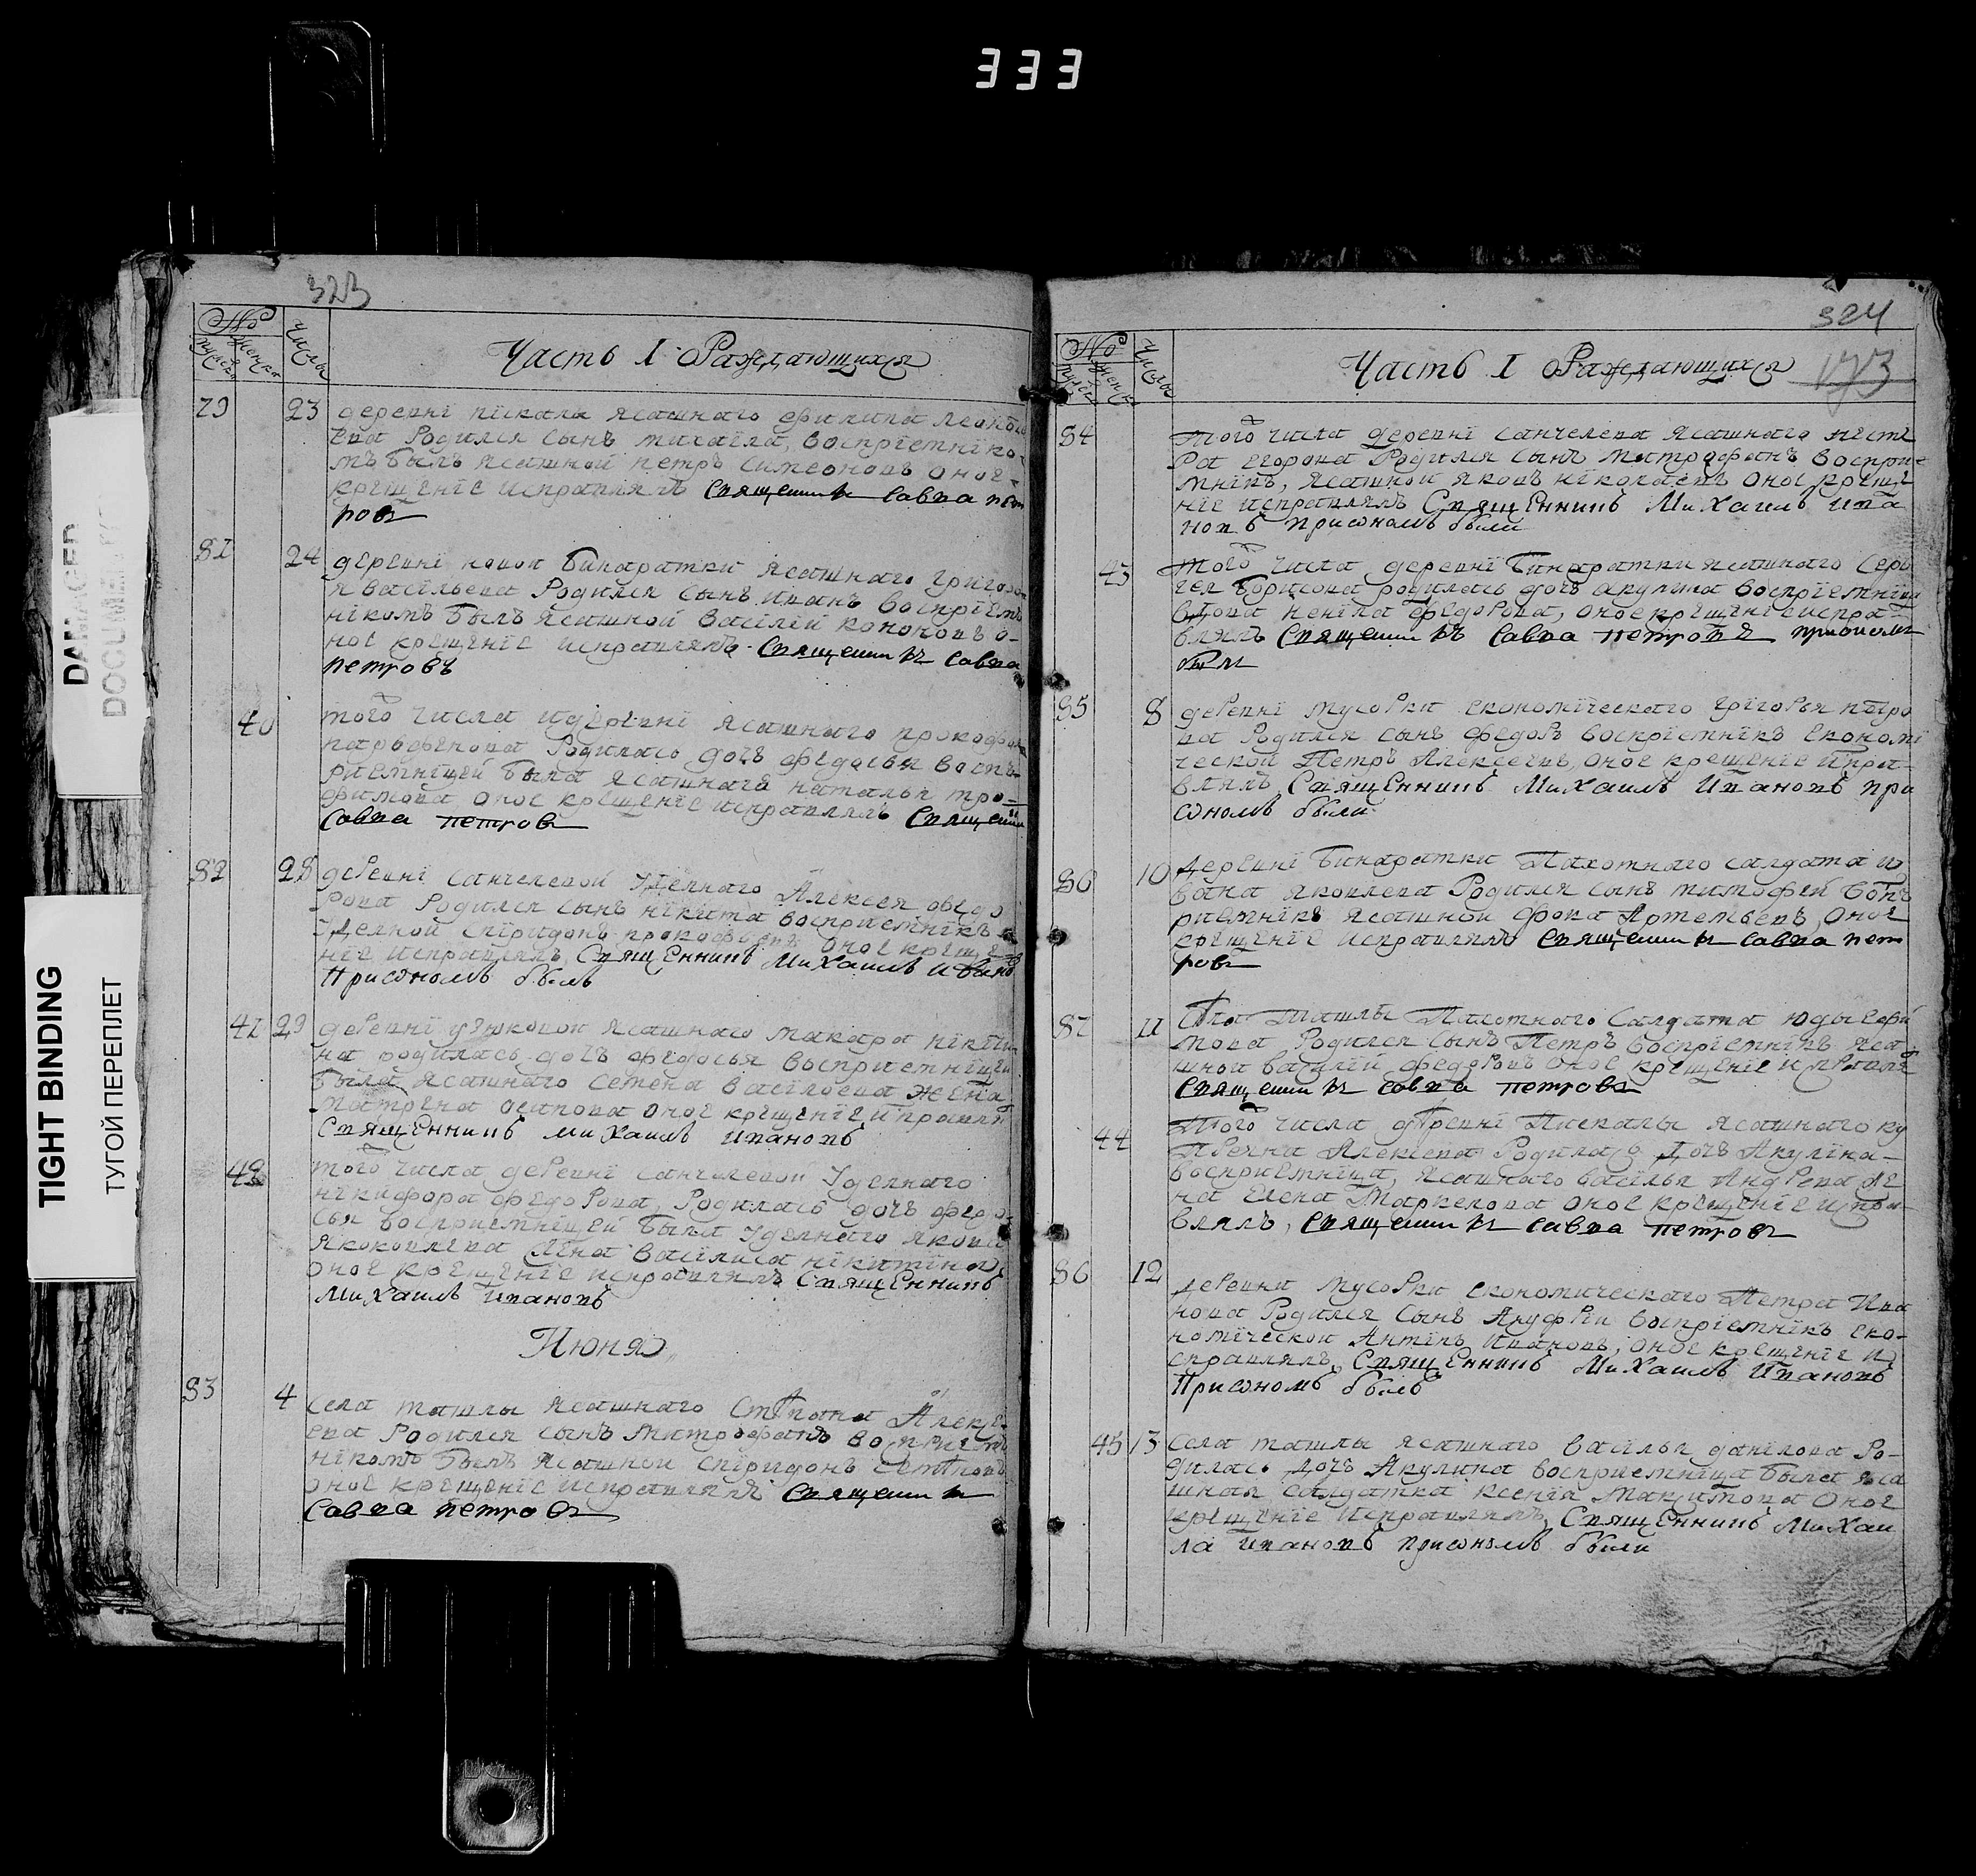 333
323
№
мужска
женска
Числы
Часть I Раждающихся
79 23 деревнї пїскала ясашнаго филипа леонть
ева Родился сынъ михаїла, воспрїемнїко
мъ былъ ясашной петръ симеоновъ оное
крещенїе исправлялъ Священникъ савва пет
ровъ
81 24 деревнї новой бинаратки ясашнаго григорь
я васїльева Родился сынъ иванъ воспрїем
нїкомъ былъ ясашной васїлїй кононовъ о-
ное крещенїе исправлялъ Священникъ савва
петровъ
40 того числа и деревнї ясашнаго прокофья
парфенова Родилась дочь федосья восп
риемнїцей была ясашнаго наталья тро-
фимова оное крещенїе исправлялъ Священни
савва петровъ
82 28 деревнї санчелевой удѣлнаго Алексея ѳедо
рова Родился сынъ нїкита восприемнїкъ
удѣлной спїридонъ прокофьевъ оное креще
нїе исправлялъ, Священникъ Михаилъ Ивано
При ономъ былъ
41 29 деревнї узюковой ясашнаго макара нїкити
на родилась дочь федосья восприемнїцей
была ясашнаго семена васїльева жена
матрена осипова оное крещенїе исправлял
Священникъ михаилъ ивановъ
42 того числа деревнї санчелевой удѣлнаго
нїкифора федорова Родилась дочь федо
сья восприемнїцей была удѣлнаго якова
яковлева жена васїлиса нїкитина
оное крещенїе исправлялъ Священникъ
Михаилъ ивановъ
Июня
83 4 села ташлы ясашнаго Степана Алексе
ева Родился сынъ митрофанъ восприем
нїкомъ былъ ясашной спїридонъ степновъ
оное крещенїе исправлялъ Священникъ
савва петровъ
324
173
№
мужска
женска
Числы
Часть I Раждающихся
84 того числа деревнї санчелева ясашнаго несте
ра егорова Родился сынъ митрофанъ воспри
мнїкъ, ясашной яковъ нїколаевъ оное креще
нїе исправлялъ Священникъ Михаилъ ива
новъ при ономъ были
43 того числа деревнї бинаратки ясашнаго Сер
гея борисова родилась дочь акулина восприемнїца
вдова ненїла федорова, оное крещенїе испра
влялъ Священникъ Савва петровъ при ономъ
были
85 8 деревнї мусорки економїческаго григорья петро
ва Родился сынъ федоръ восприемнїкъ економї
ческой Петръ Алексеевъ, оное крещенїе испра-
влялъ, Священникъ Михаилъ Ивановъ при
ономъ были
86 10 деревнї бинаратки Пахотнаго салдата и
вана яковлева Родился сынъ тимофей восп
риемнїкъ ясашной фома Артемьевъ, оное
крещенїе исправлялъ Священникъ савва пет
ровъ
87 11 Села Ташлы Пахотнаго Салдата юды ефи
мова Родился сынъ Петръ восприемнїкъ яса
шной васїлїй федоровъ оное крещенїе исправлялъ
Священникъ савва петровъ
44 Того числа деревнї Пискалы ясашнаго ку
Алексеева Родилась Дочь Акулина-
восприемнїца, ясашнаго васїлья Андреева же
на Елена Маркелова оное крещенїе испра-
влялъ, Священникъ савва петровъ
86 12 деревни мусорки економическаго Петра Ива
нова Родился сынъ Ануфрїи воспрїемнїкъ еко-
номїческой Антїпъ Ивановъ, оное крещенїе и
справлялъ, Священникъ Михаилъ Ивановъ
При ономъ былъ
45 13 села ташлы ясашнаго васїлья данїлова Ро-
дилась дочь Акулина восприемнїца была яса
шная салдатка ксенїя Максимова оное
крещенїе исправлялъ, Священникъ Михаи
ла ивановъ при ономъ были
DAMAGED
DOCUME
TIGHT BINDING
ТУГОЙ ПЕРЕПЛЕТ